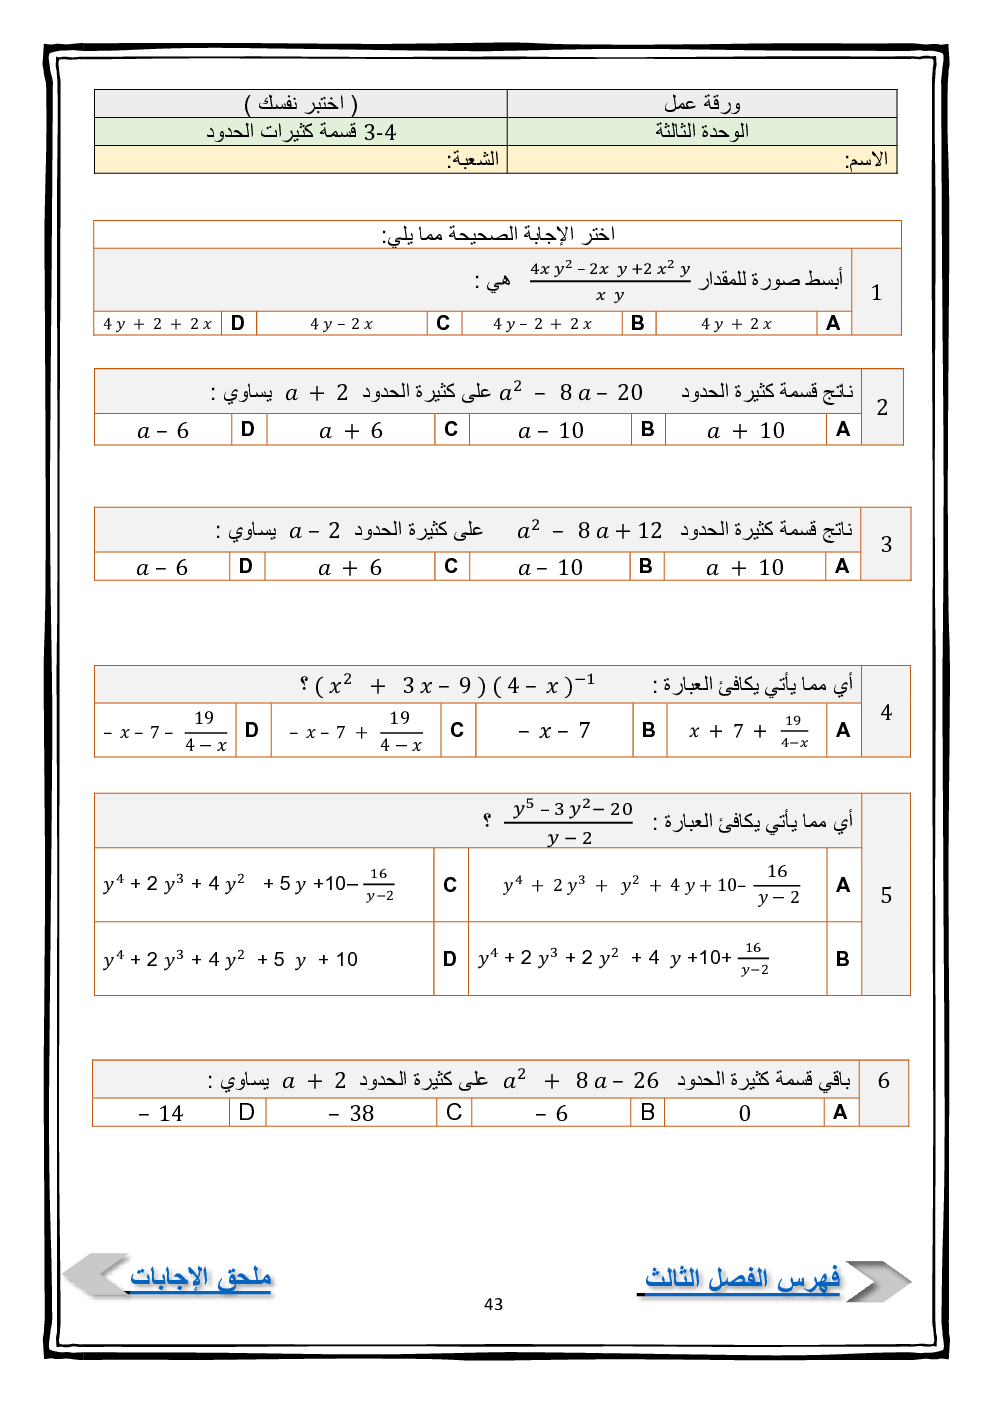 ورقة عمل ( اختبر نفسك )
الوحدة الثالثة 3-4 قسمة كثيرات الحدود
الاسم: الشعبة:
اختر الإجابة الصحيحة مما يلي:
1 أبسط صورة للمقدار (4x y² – 2x y + 2 x² y) / (x y) هي :
A 4 y + 2 x B 4 y – 2 + 2 x C 4 y – 2 x D 4 y + 2 + 2 x
2 ناتج قسمة كثيرة الحدود a² – 8 a – 20 على كثيرة الحدود a + 2 يساوي :
A a + 10 B a – 10 C a + 6 D a – 6
3 ناتج قسمة كثيرة الحدود a² – 8 a + 12 على كثيرة الحدود a – 2 يساوي :
A a + 10 B a – 10 C a + 6 D a – 6
4 أي مما يأتي يكافئ العبارة : ( x² + 3 x – 9 ) ( 4 – x )⁻¹ ؟
A x + 7 + 19/(4−x) B – x – 7 C – x – 7 + 19/(4 − x) D – x – 7 – 19/(4 − x)
5 أي مما يأتي يكافئ العبارة : (y⁵ – 3 y² − 20) / (y − 2) ؟
A y⁴ + 2 y³ + y² + 4 y + 10 – 16/(y − 2) C y⁴ + 2 y³ + 4 y² + 5 y +10– 16/(y−2)
B y⁴ + 2 y³ + 2 y² + 4 y +10+ 16/(y−2) D y⁴ + 2 y³ + 4 y² + 5 y + 10
6 باقي قسمة كثيرة الحدود a² + 8 a – 26 على كثيرة الحدود a + 2 يساوي :
A 0 B – 6 C – 38 D – 14
فهرس الفصل الثالث ملحق الإجابات
43